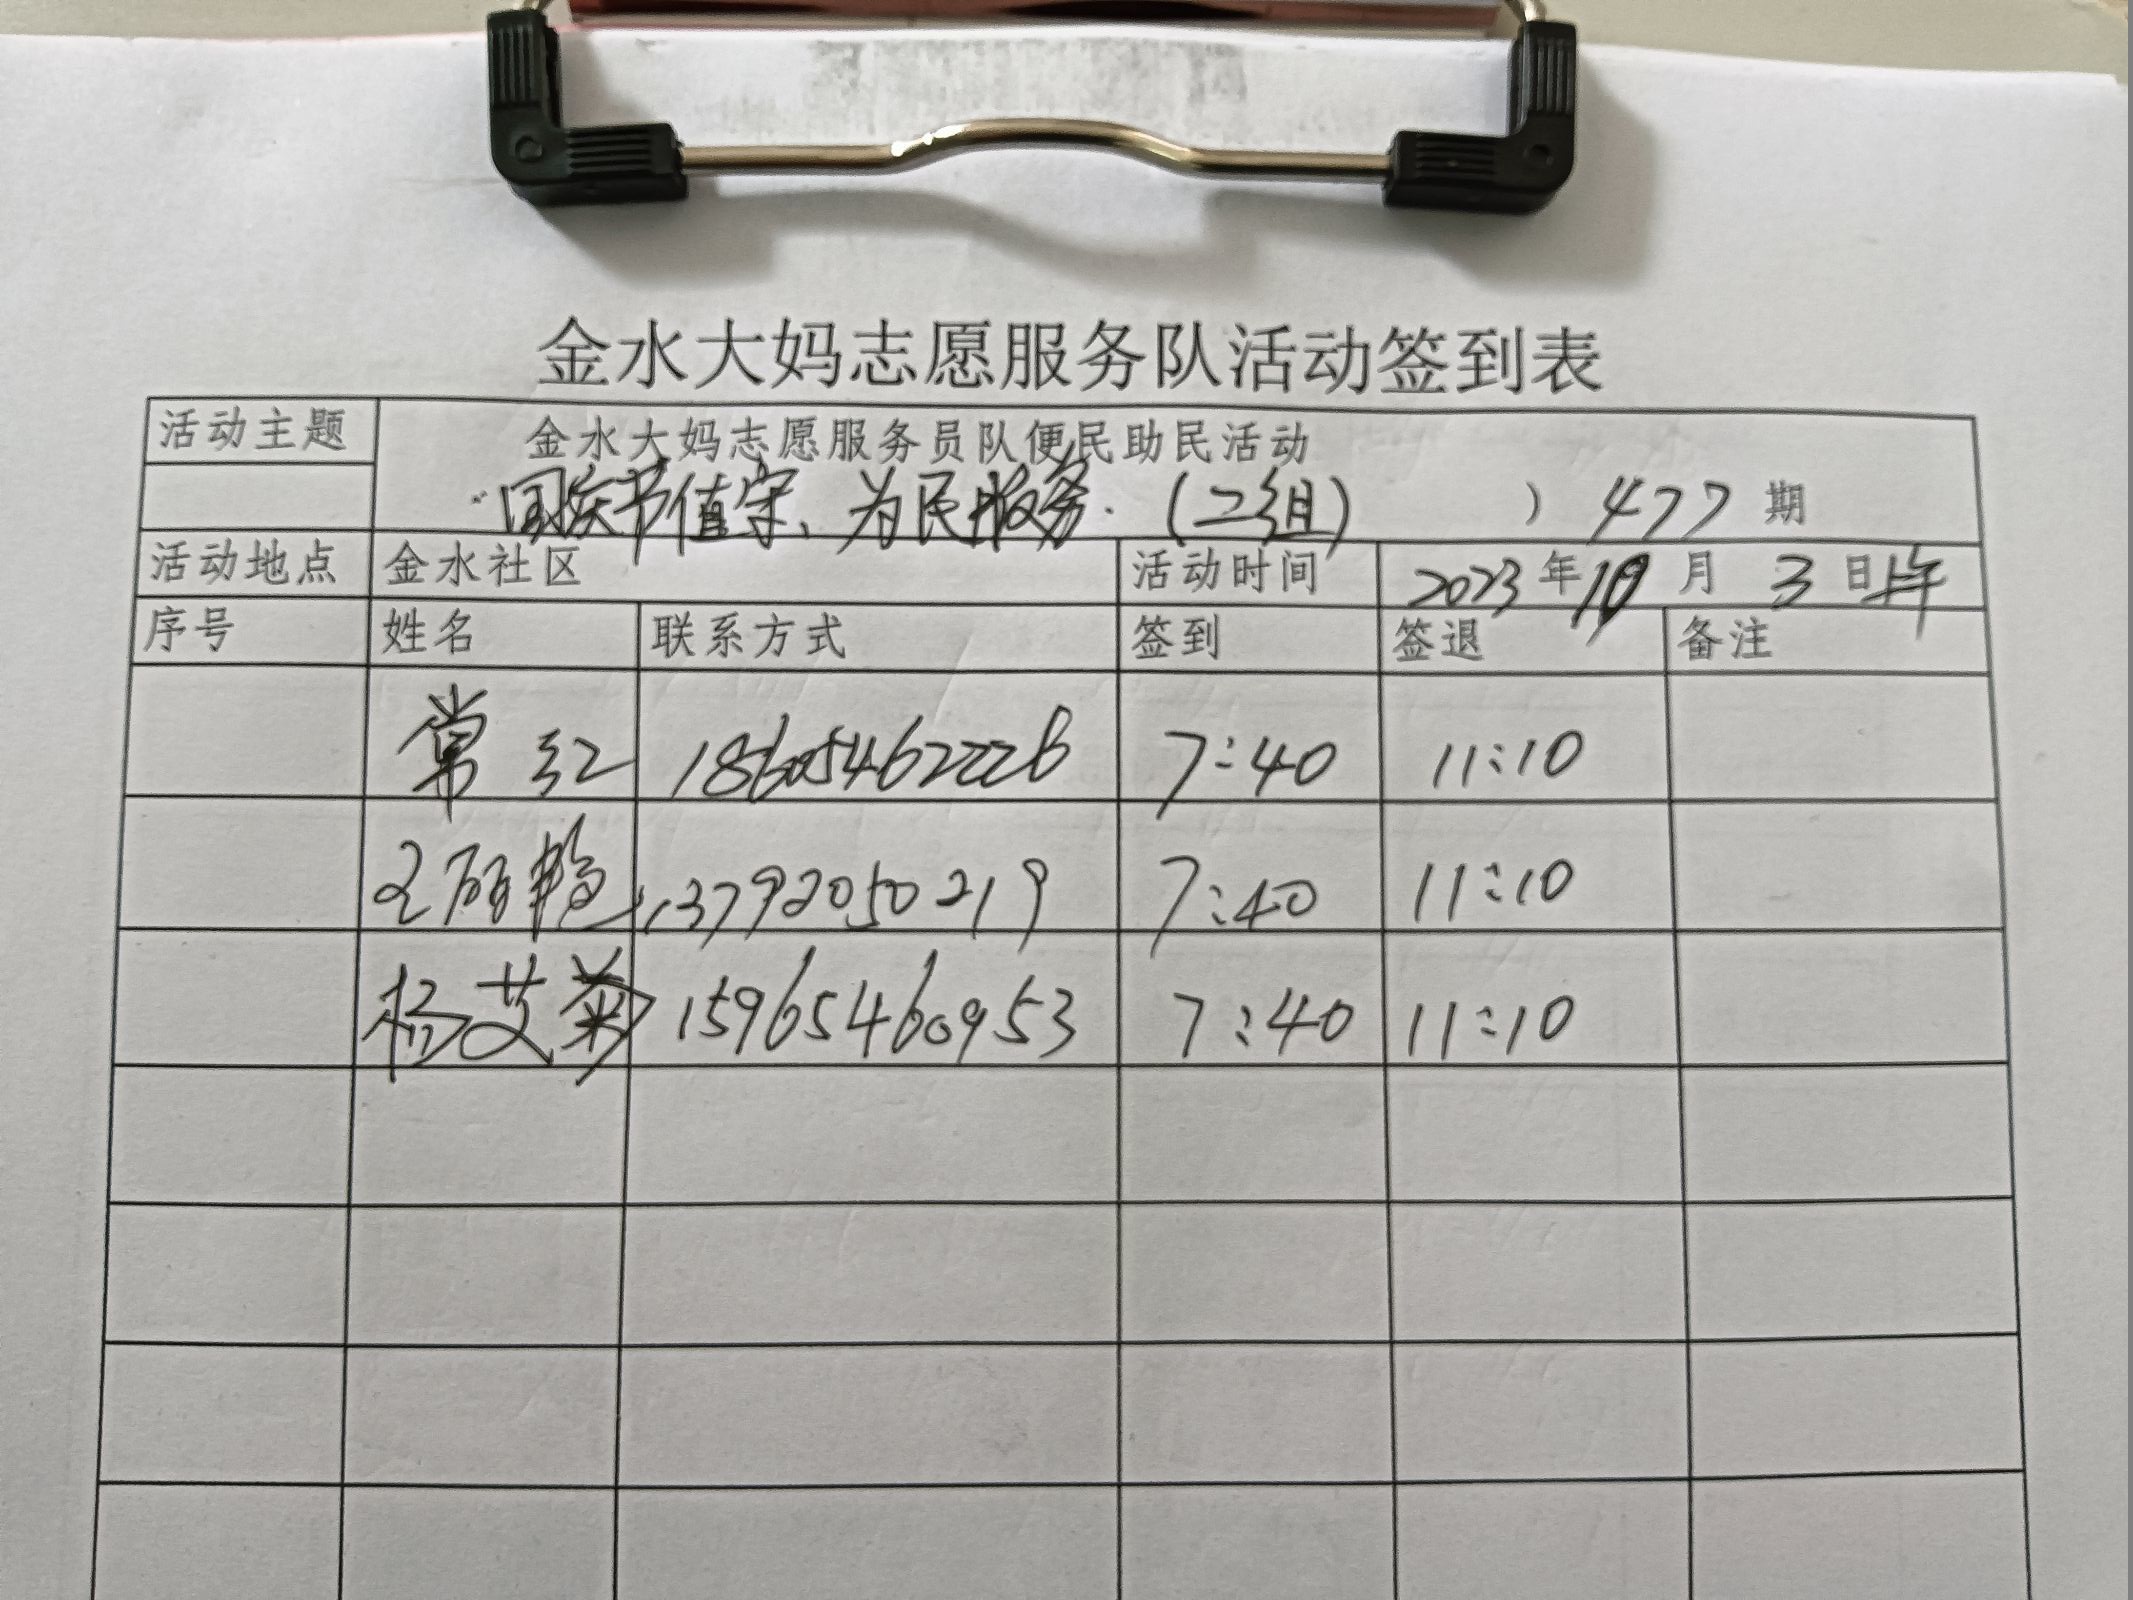 金水大妈志愿服务队活动签到表
活动主题 金水大妈志愿服务员队便民助民活动
国庆节值守、为民服务.(二组) ) 477 期
活动地点 金水社区 活动时间 2023 年 10 月 3 日上午
序号 姓名 联系方式 签到 签退 备注
常红 18605462226 7:40 11:10
王丽艳 13792050219 7:40 11:10
杨艾菊 15965460953 7:40 11:10